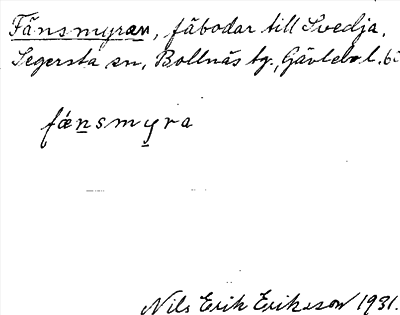 Fänsmyran, fäbodar till Svedja,
Segersta sn, Bollnäs tg., Gävleb. l.
fǽnsmyra
Nils Erik Eriksson 1931.